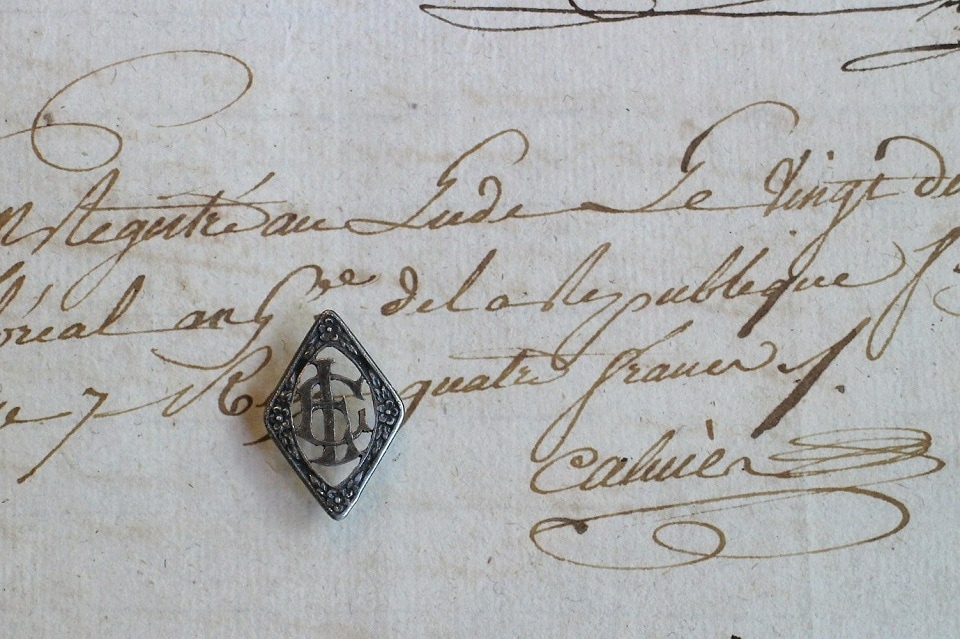 Registré au Lude Le vingt
réal an de la Republique
7 R quatre francs
cahier